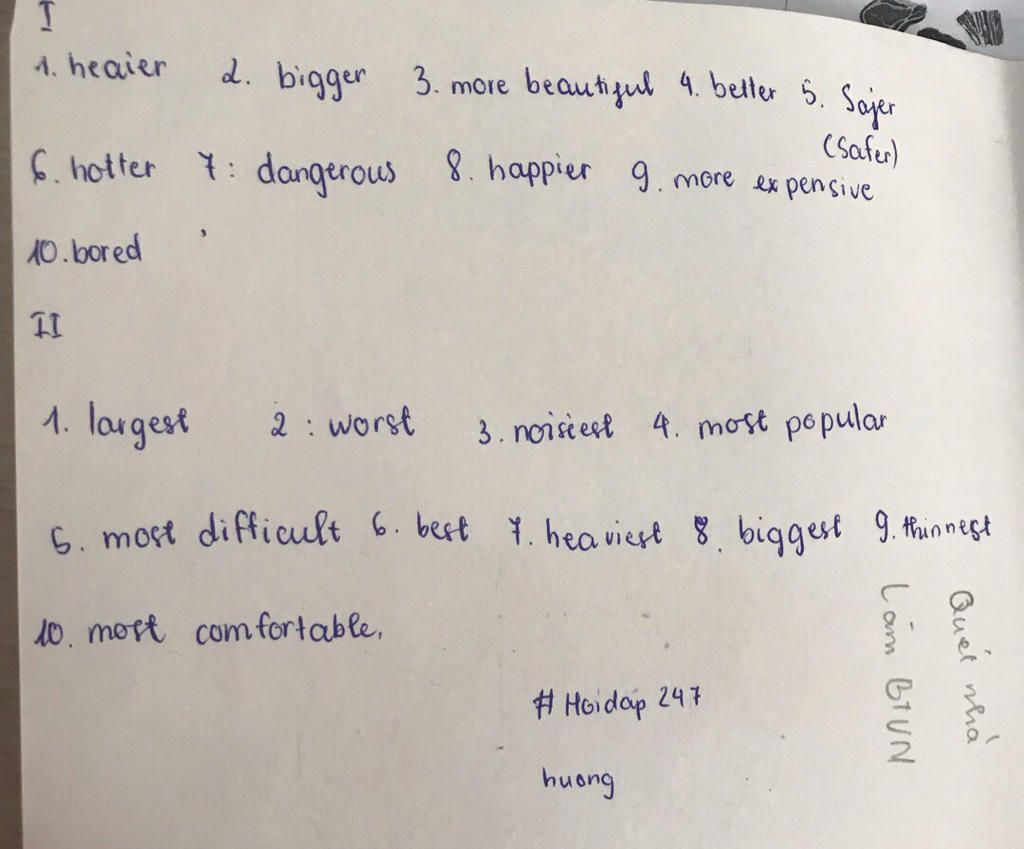 I
1. heaier 2. bigger 3. more beautiful 4. better 5. Sajer
(Safer)
6. hotter 7: dangerous 8. happier 9. more expensive
10. bored
II
1. largest 2: worst 3. noisiest 4. most popular
5. most difficult 6. best 7. heaviest 8. biggest 9. thinnest
10. most comfortable.
# Hoidap 247
huong
Quét nhà
Làm BTVN